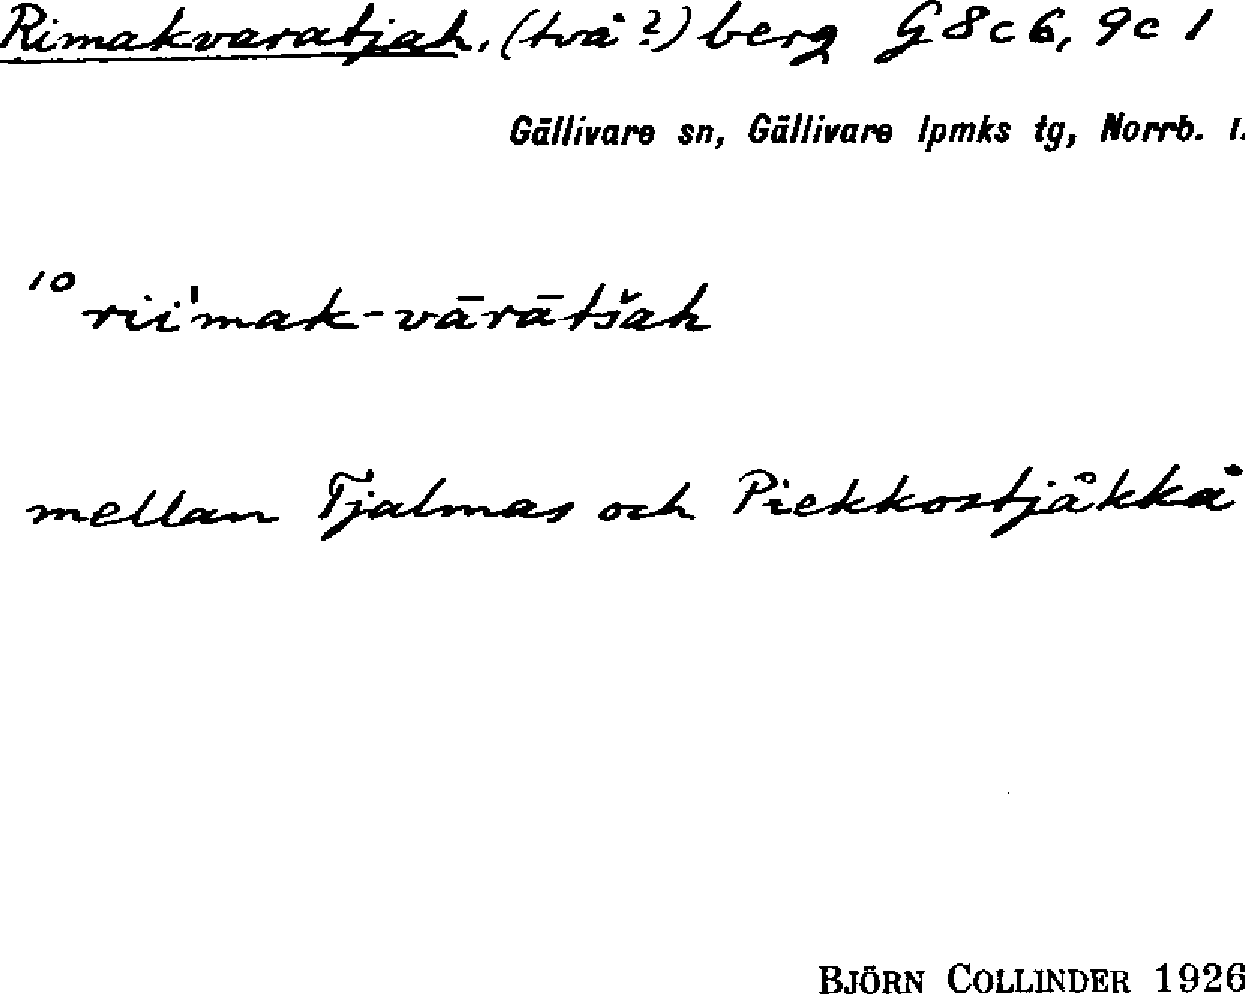 Rimakvaratjah, (två?) berg G 8 c 6, 9 c 1
Gällivare sn, Gällivare lpmks tg, Norrb. l.
10 rii'mak-vārātšah
mellan Tjalmas och Piekkostjåkkå
BJÖRN COLLINDER 1926